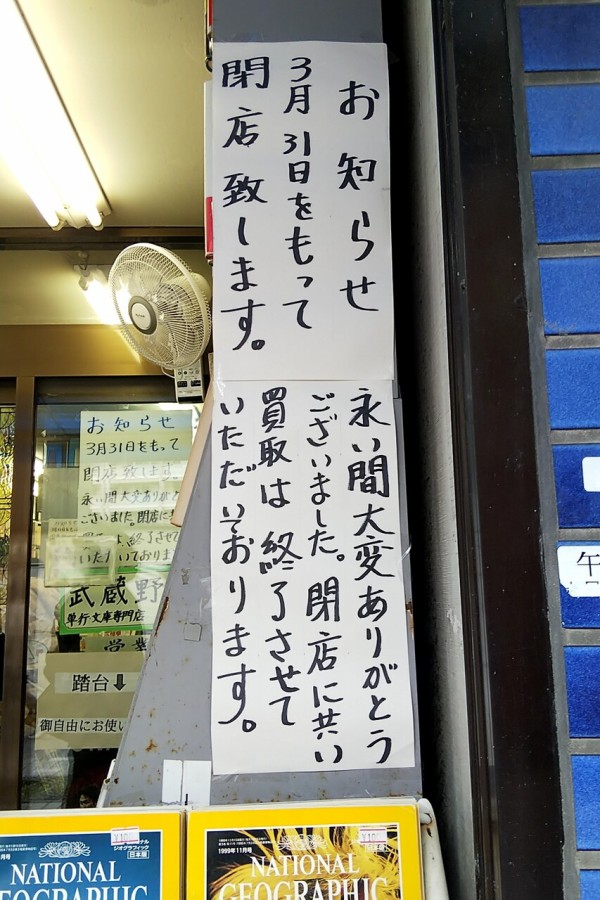 お知らせ
3月31日をもって
閉店致します。
永い間大変ありがとう
ございました。閉店に共い
買取は終了させて
いただいております。
お知らせ
3月31日をもって
閉店致します。
永い間大変ありがと
ございました。閉店に
は終了させて
いただいておりま
武蔵野
単行文庫専門店
営業
踏台↓
御自由にお使い
午
月号
¥10
ナショナル
ジオグラフィック
日本版
NATIONAL
GEOGRAPHIC
1999年11月号
¥10
NATIONAL
GEOGRAPHIC